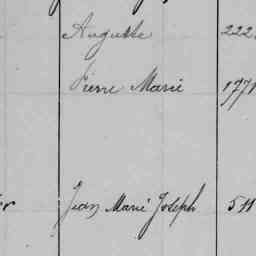 Auguste 222
Pierre Marie 1771
er Jean Marie Joseph 511